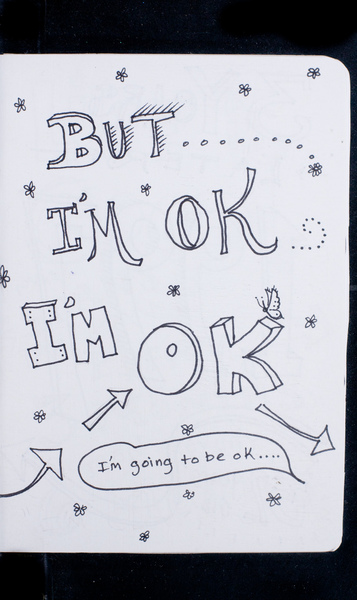 BUT..........
I'M OK
I'M OK
I'm going to be ok....